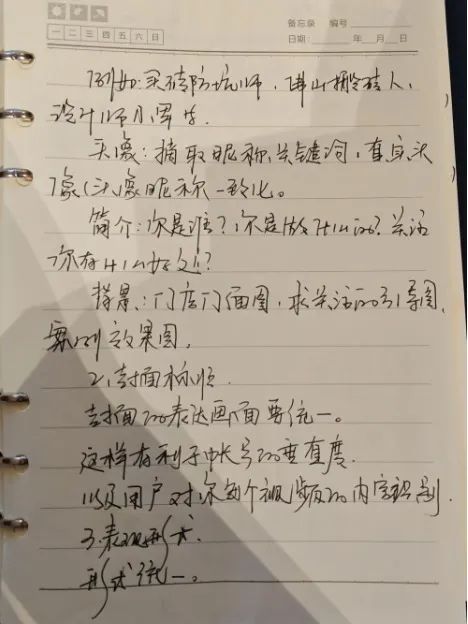 备忘录 编号
一 二 三 四 五 六 日
日期： 年 月 日
例如：买砖防坑师，佛山搬砖人，
设计师小军哥.
头像：摘取昵称关键词，真实头
像（头像昵称一致化。
简介：你是谁？你是做什么的？关注
你有什么好处？
背景：门店门面图，求关注的引导图，
案例效果图。
2、封面标题.
封面的表达画面要统一。
这样有利于账号的垂直度.
以及用户对你每个视频的内容识别.
3、表现形式.
形式统一。